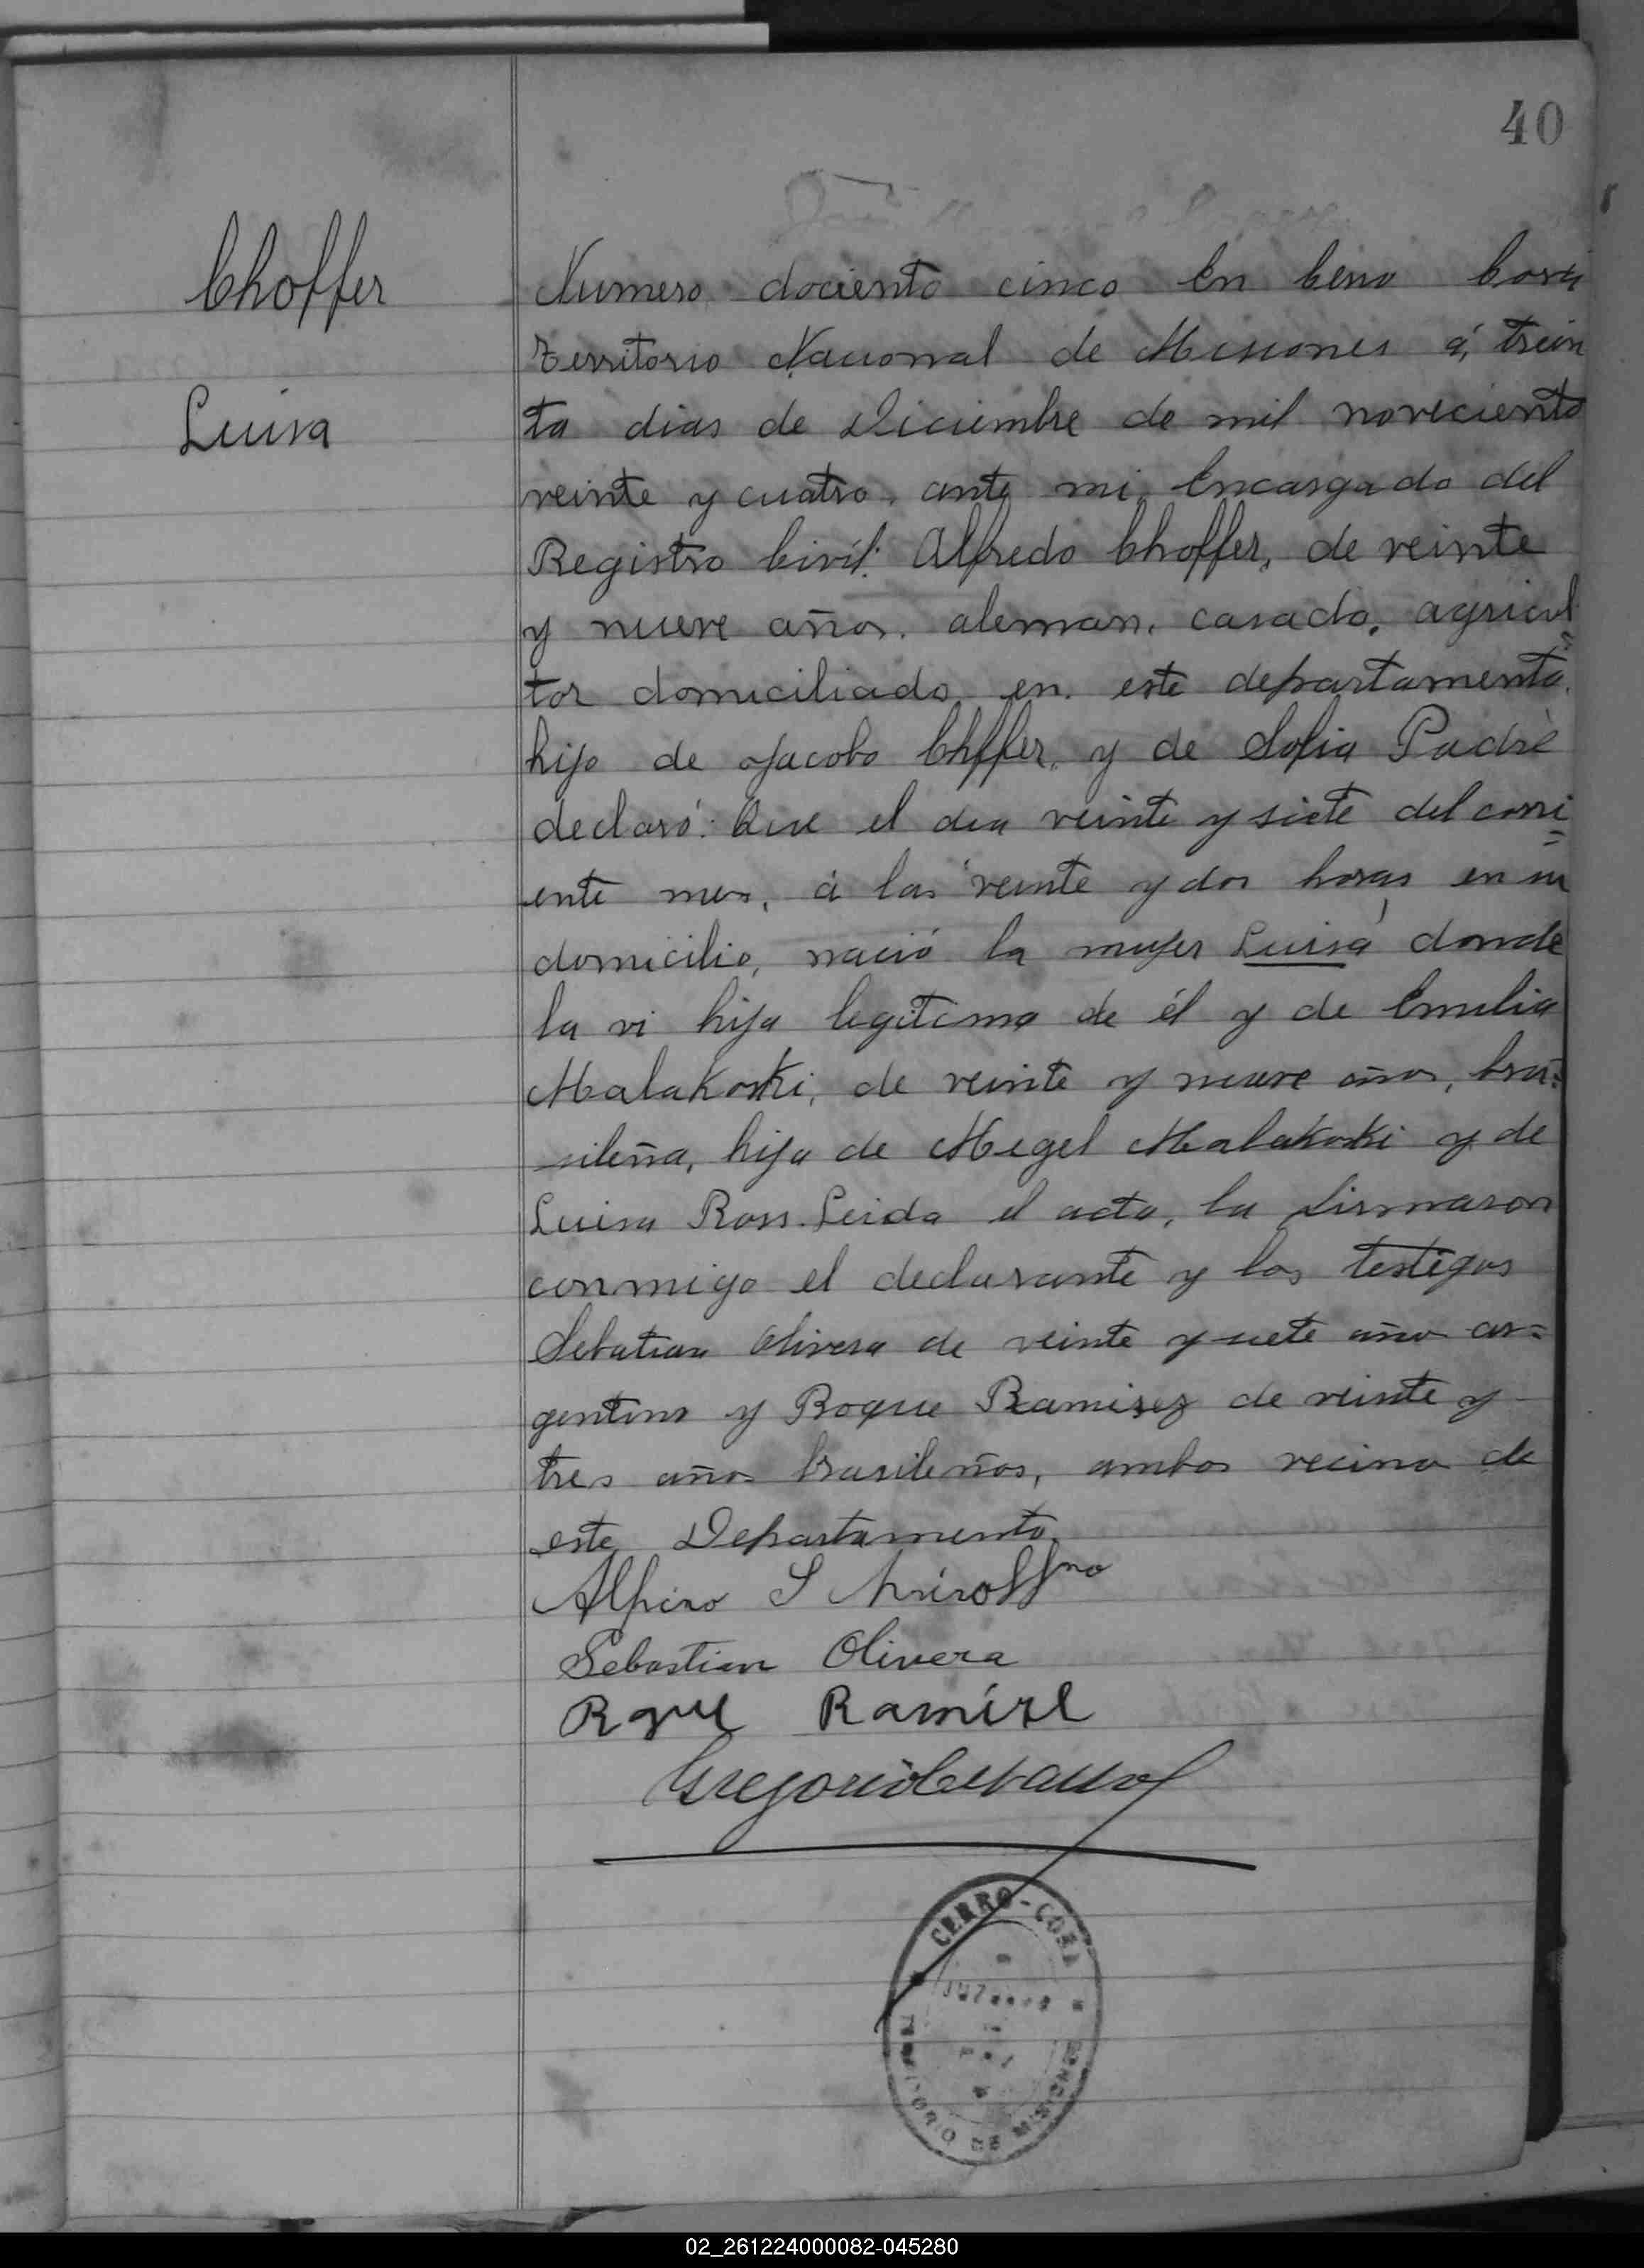 40
Choffer
Luisa
Numero dociento cinco En Cerro Corá
territorio Nacional de Misiones á, trein
ta dias de Diciembre de mil noveciento
veinte y cuatro, ante mi, Encargado del
Registro Civil: Alfredo Choffer, de veinte
y nueve años, aleman, casado, agricul=
tor domiciliado, en este departamento,
hijo de Jacobo Chffer, y de Sofia Padrè
declaró: Que el dia veinte y siete del corri=
ente mes, á las veinte y dos horas, en su
domicilio, nació la mujer Luisa donde
la vi hija legitima de él y de Emilia
Malakoski, de veinte y nueve años, bra=
sileña, hija de Megel Malakoski y de
Luisa Ross. Leida el acta, la firmaron
conmigo el declarante y los testigos
Sebatian Olivera de veinte y siete año ar=
gentino y Roque Ramirez de veinte y
tres años brasileños, ambos vecino de
este Departamento.
Sebastian Olivera
Rque Ramire
Gregorio
CERRO-CORÁ
TERRITORIO DE MISIONES
02_261224000082-045280